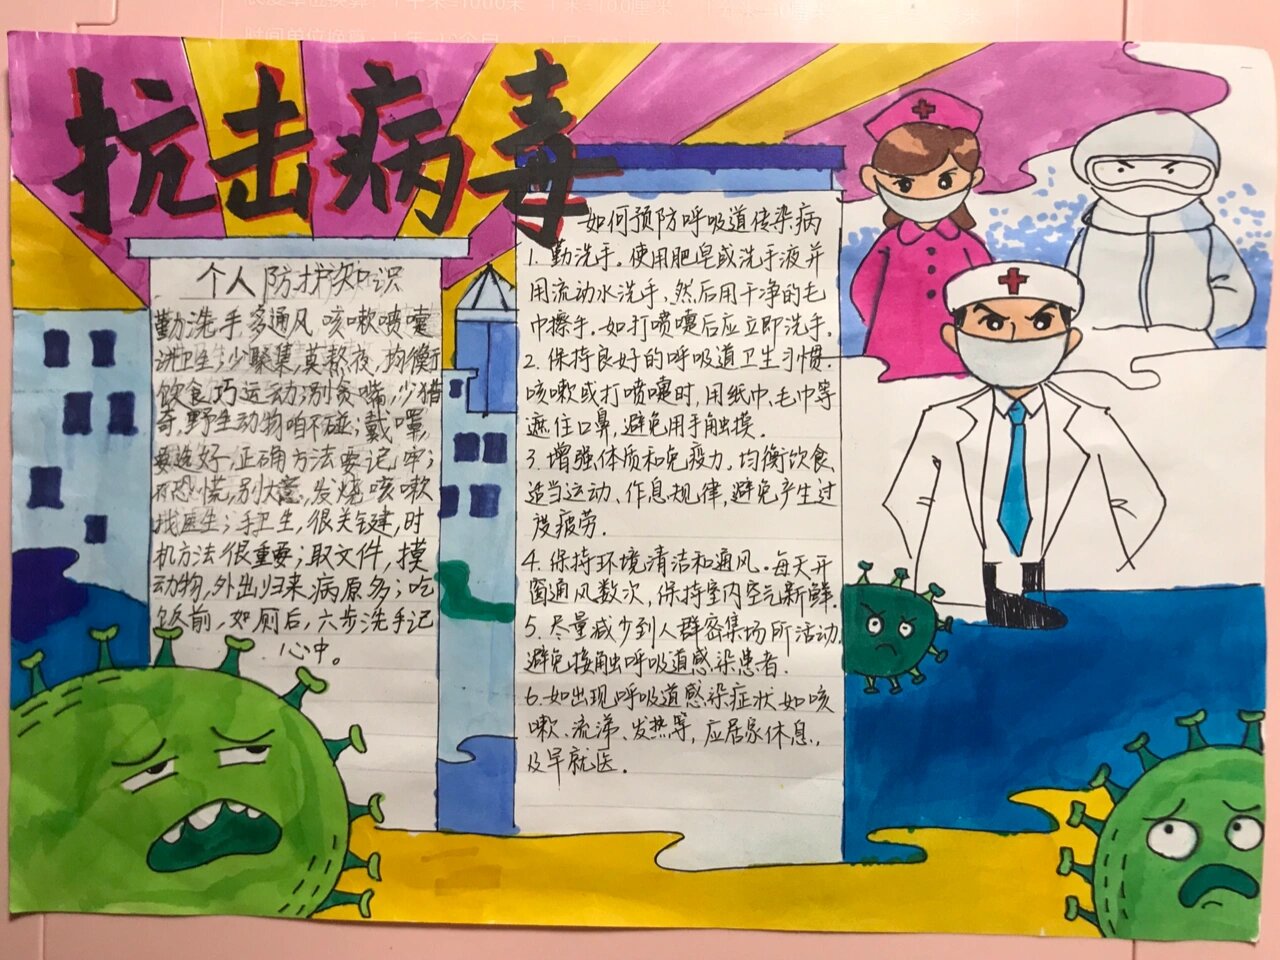 抗击病毒
个人防护知识
勤洗手多通风,咳嗽喷嚏
讲卫生;少聚集,莫熬夜,均衡
饮食巧运动;别贪嘴,少猎
奇,野生动物咱不碰;戴口罩,
要选好,正确方法要记牢;
不恐慌,别大意,发烧咳嗽
找医生;手卫生,很关键,时
机方法很重要;取文件,摸
动物,外出归来,病原多;吃
饭前,如厕后,六步洗手记
心中。
如何预防呼吸道传染病
1.勤洗手。使用肥皂或洗手液并
用流动水洗手,然后用干净的毛
巾擦手。如打喷嚏后应立即洗手。
2.保持良好的呼吸道卫生习惯。
咳嗽或打喷嚏时,用纸巾、毛巾等
遮住口鼻,避免用手触摸。
3.增强体质和免疫力,均衡饮食、
适当运动、作息规律,避免产生过
度疲劳。
4.保持环境清洁和通风。每天开
窗通风数次,保持室内空气新鲜。
5.尽量减少到人群密集场所活动,
避免接触呼吸道感染患者.
6.如出现呼吸道感染症状如咳
嗽、流涕、发热等,应居家休息,
及早就医.